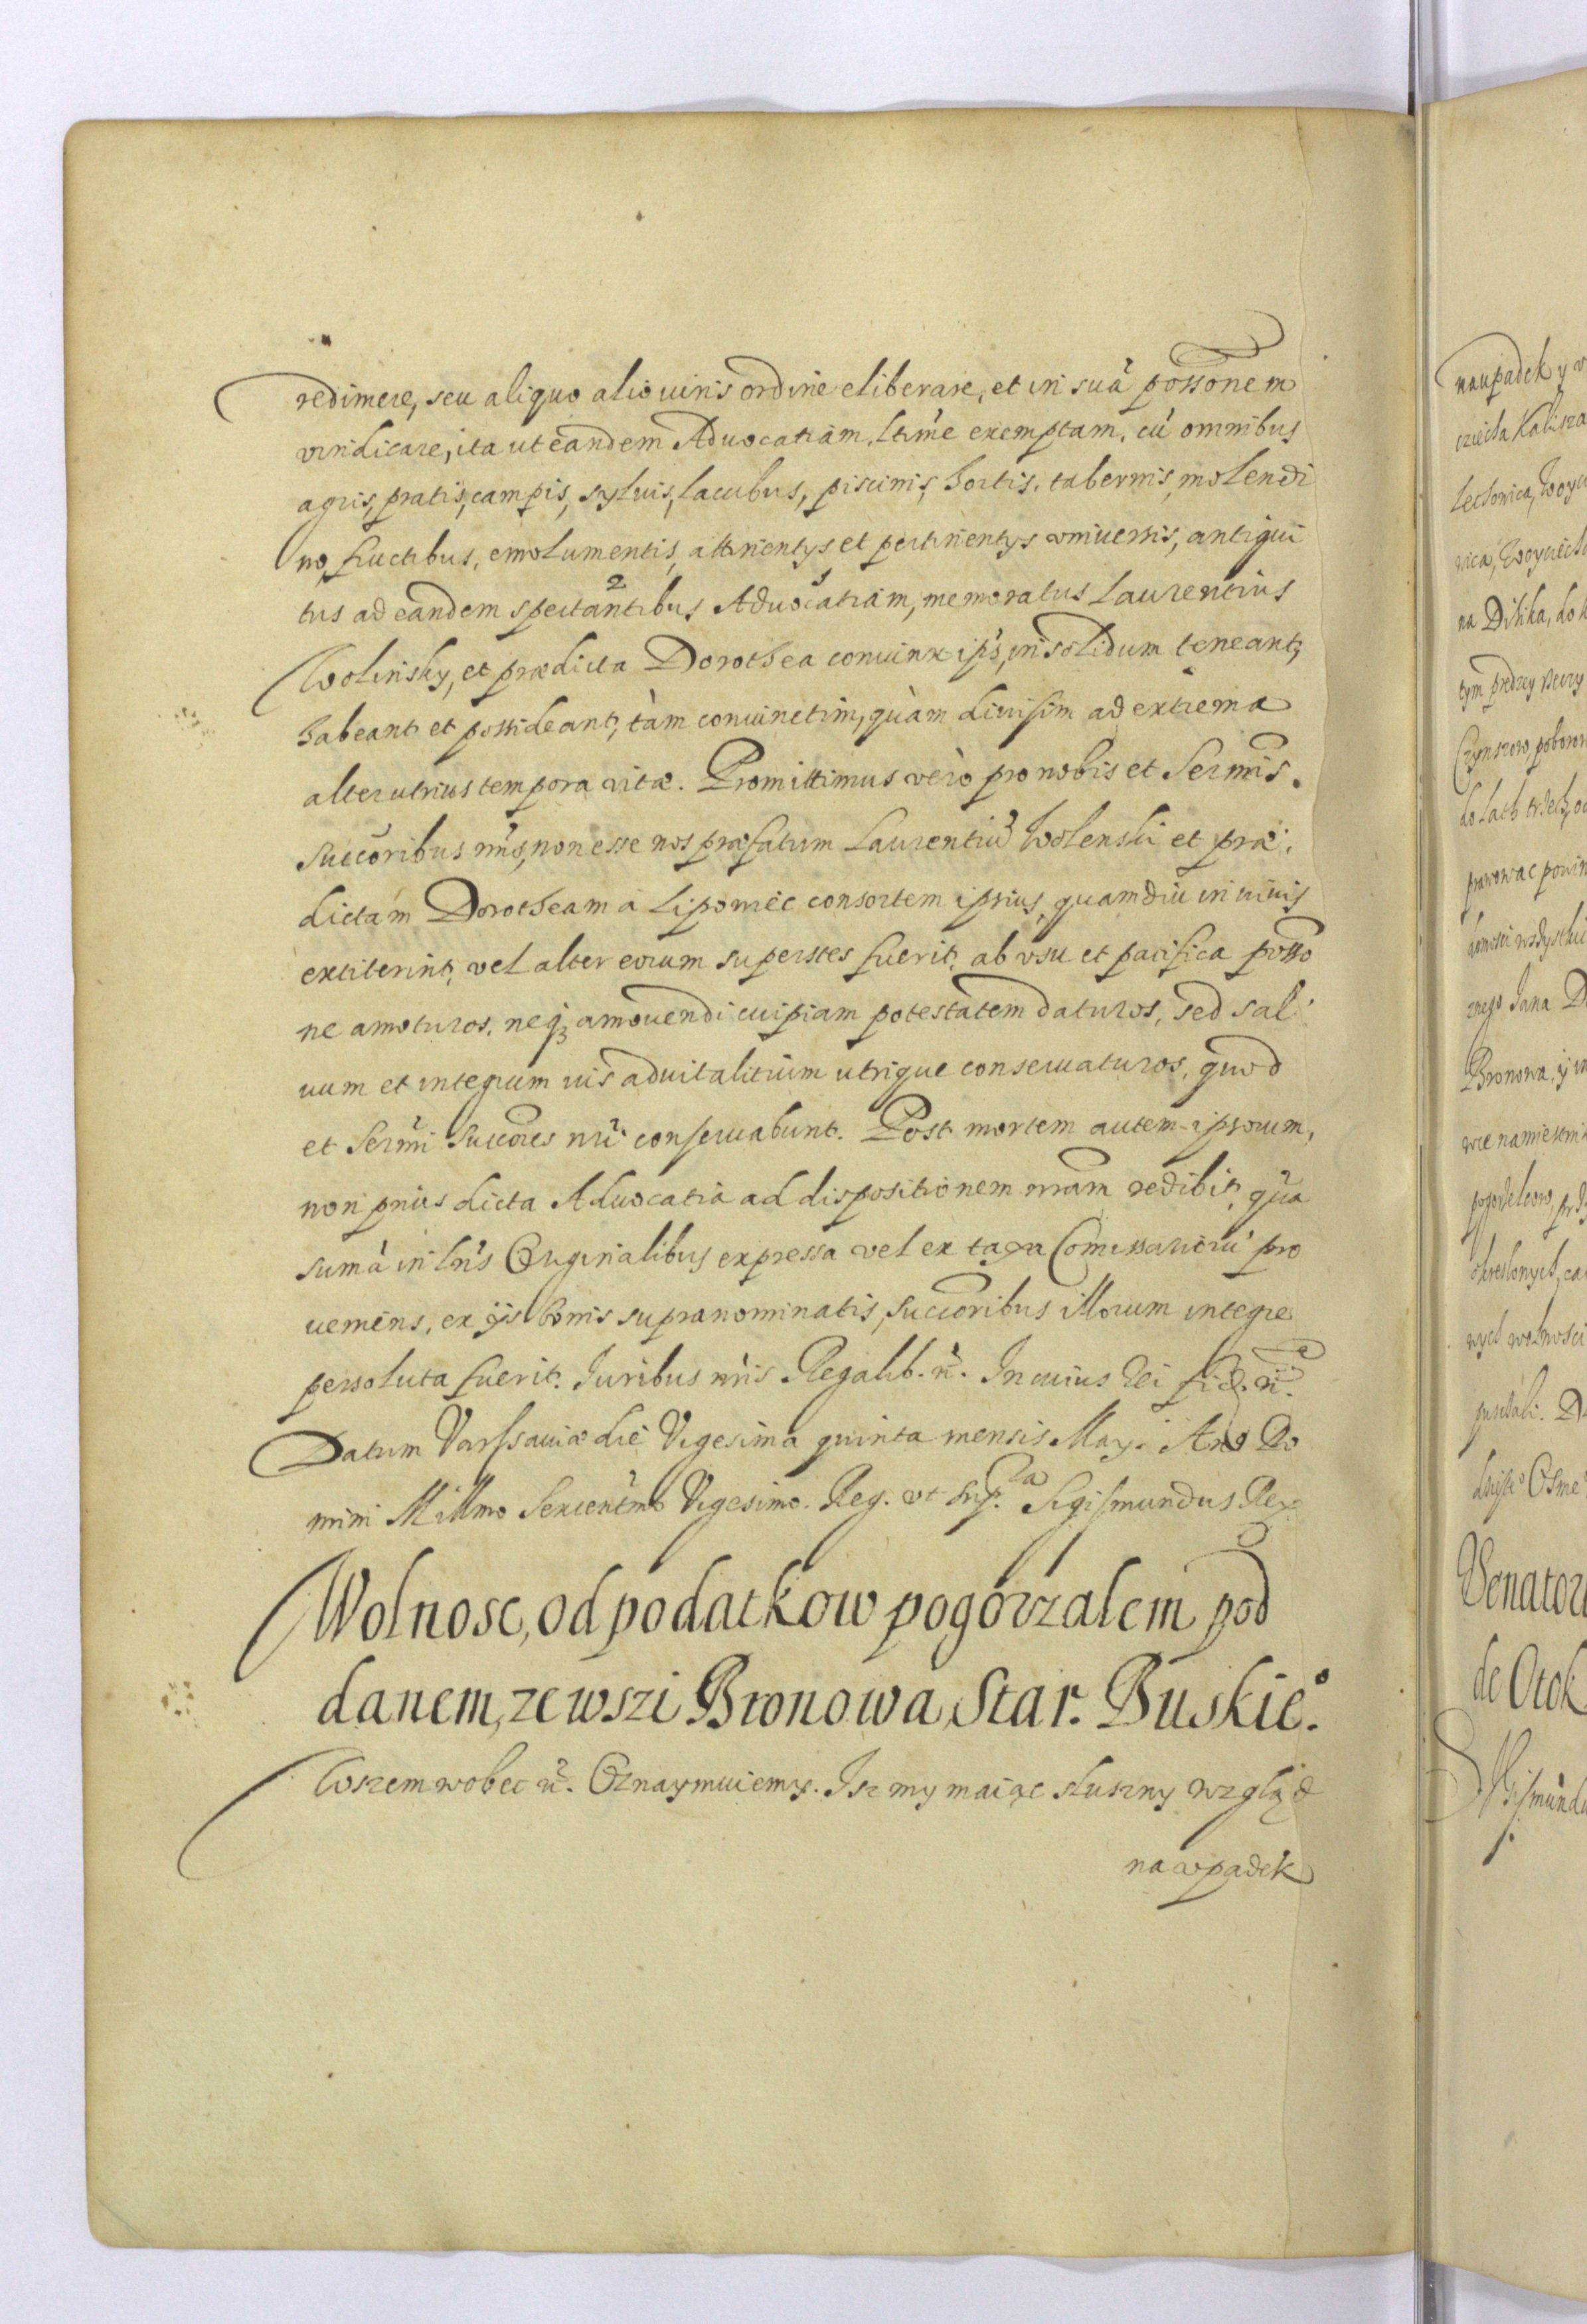 redimere, seu aliquo alio iuris ordine eliberare, et in suã possonem
vindicare, ita ut eandem Aduocatiam, ltime exemptam, cũ omnibus
agris, pratis, campis, syluis, lacubus, piscinis, hortis, tabernis, molendi
no, fructibus, emolumentis, attinentys et pertinentys vniuersis, antiqui
tus ad eandem spectantibus Aduocatiam, memoratus Laurentius
Wolinsky, et prædicta Dorothea coniunx ips, in solidum teneant,
habeant et possideant, tàm coniunctim, quàm diuisim ad extrema
alterutrius tempora vitæ. Promittimus verò pro nobis et Sermis.
Succoribus nris, non esse nos præfatum Laurentiũ Wolenski et præ
dictam Dorotheam à Lipowiec consortem ipsius, quamdiu in viuis
extiterint, vel alter eorum superstes fuerit, ab vsu et pacifica posso
ne amoturos, neq₃ amouendi cuipiam potestatem daturos, sed sal
uum et integrum ius aduitalitium utrique conseruaturos, quod
et Sermi Succores nri conseruabunt. Post mortem autem ipsorum,
non prius dicta Aduocatia ad dispositionem nram redibit, quã
sumã in lris Originalibus expressa vel ex taxa Comissariorũ pro
ueniens, ex ijs bonis supranominatis, Succoribus illorum integre
persoluta fuerit. Iuribus nris Regalib. ñ. In cuius rei fid. ñ.
Datum Varssauiæ die Vigesima quinta mensis May. Ano Do
mini Millmo Sexcentmo Vigesimo. Reg. vt supra Sigismundus Rex
Wolnosc, od podatkow pogorzalem pod
danem, ze wszi Bronowa Star. Buskieº.
Wszem wobec ñ. Oznaymuiemy. Isz my maiąc słuszny wzgląd
na vpadek